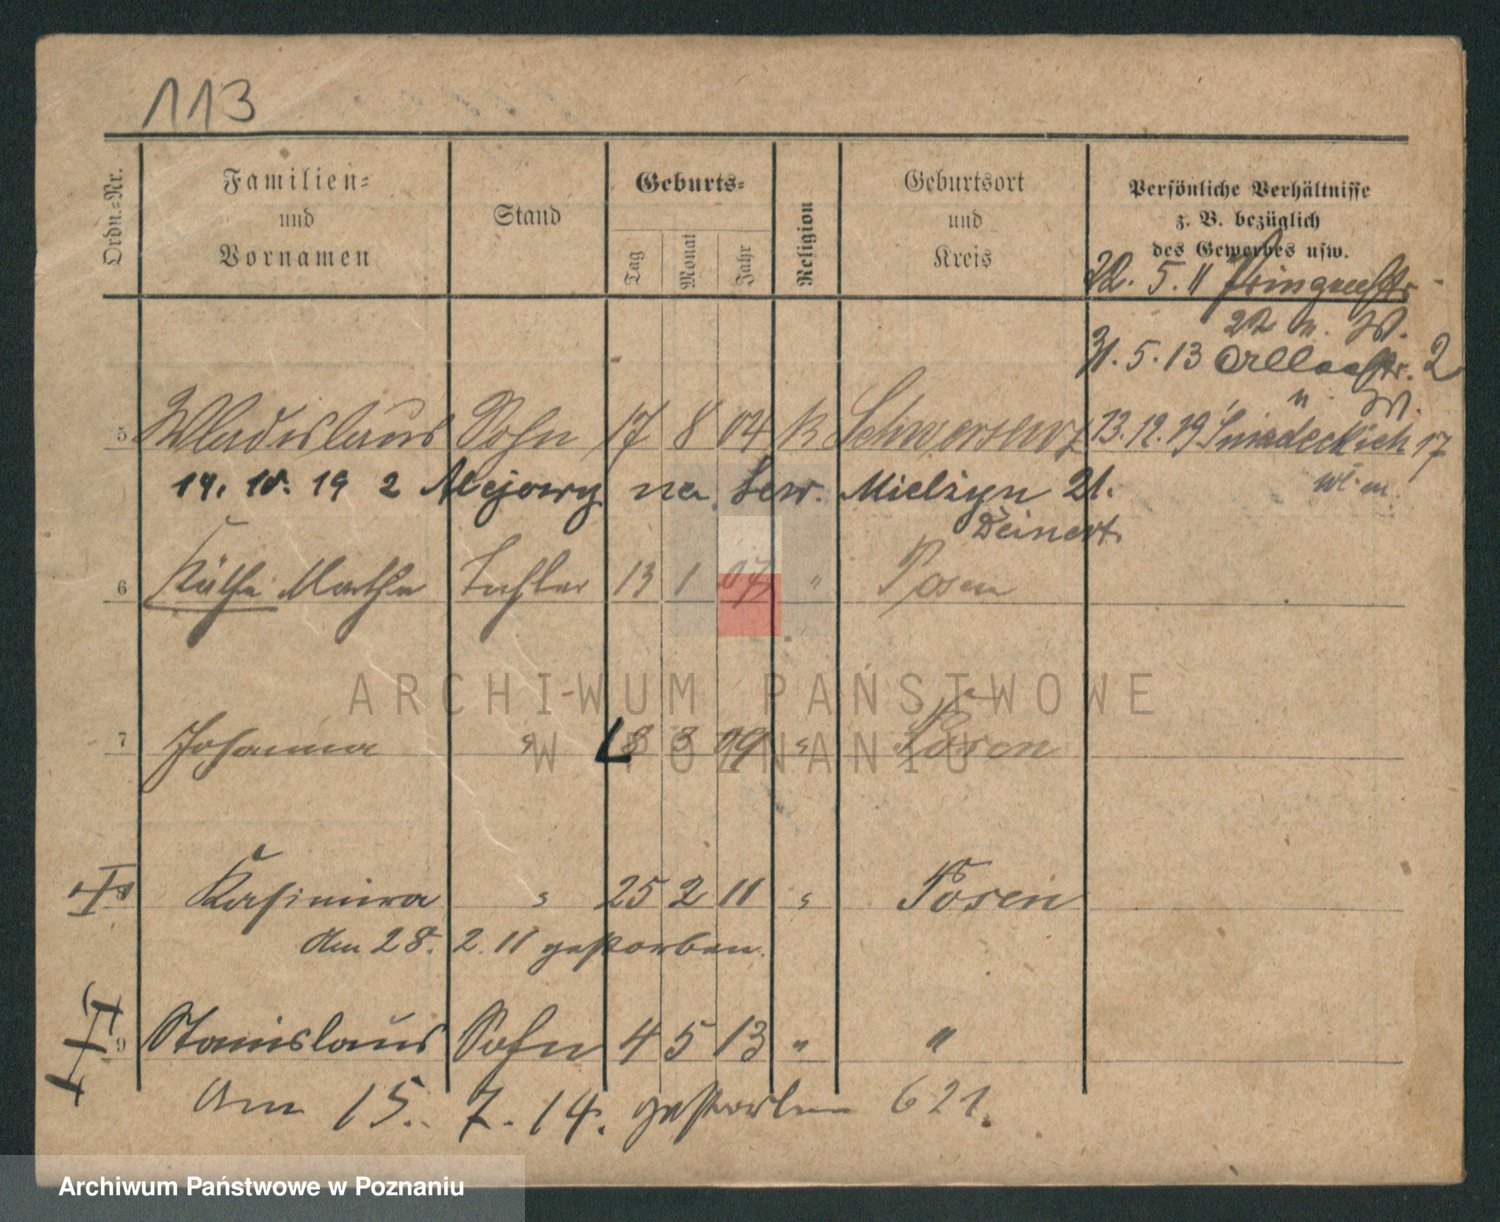 113
Ordn.-Nr.
Familien-
und
Vornamen
Stand
Geburts-
Tag
Monat
Jahr
Religion
Geburtsort
und
Kreis
Persönliche Verhältnisse
z. B. bezüglich
des Gewerbes usw.
22. 5. 11
22 n. W.
31. 5. 13 2
n. W.
5 Wladislaus Sohn 17 8 04 K Schwersenz 13.12.19 Śniadeckich 17
14. 10. 19 2 Alejowy na Sew. Mielżyn 21.
Deinert
6 Käthe Marthe Tochter 13 1 07 " Posen
7 Johanna " 8 3 09 " Posen
8 Kasimira " 25 2 11 " Posen
Am 28. 2. 11 gestorben.
9 Stanislaus Sohn 4 5 13 " "
Am 15. 7. 14. gestorben 621.
ARCHIWUM PAŃSTWOWE
W POZNANIU
Archiwum Państwowe w Poznaniu